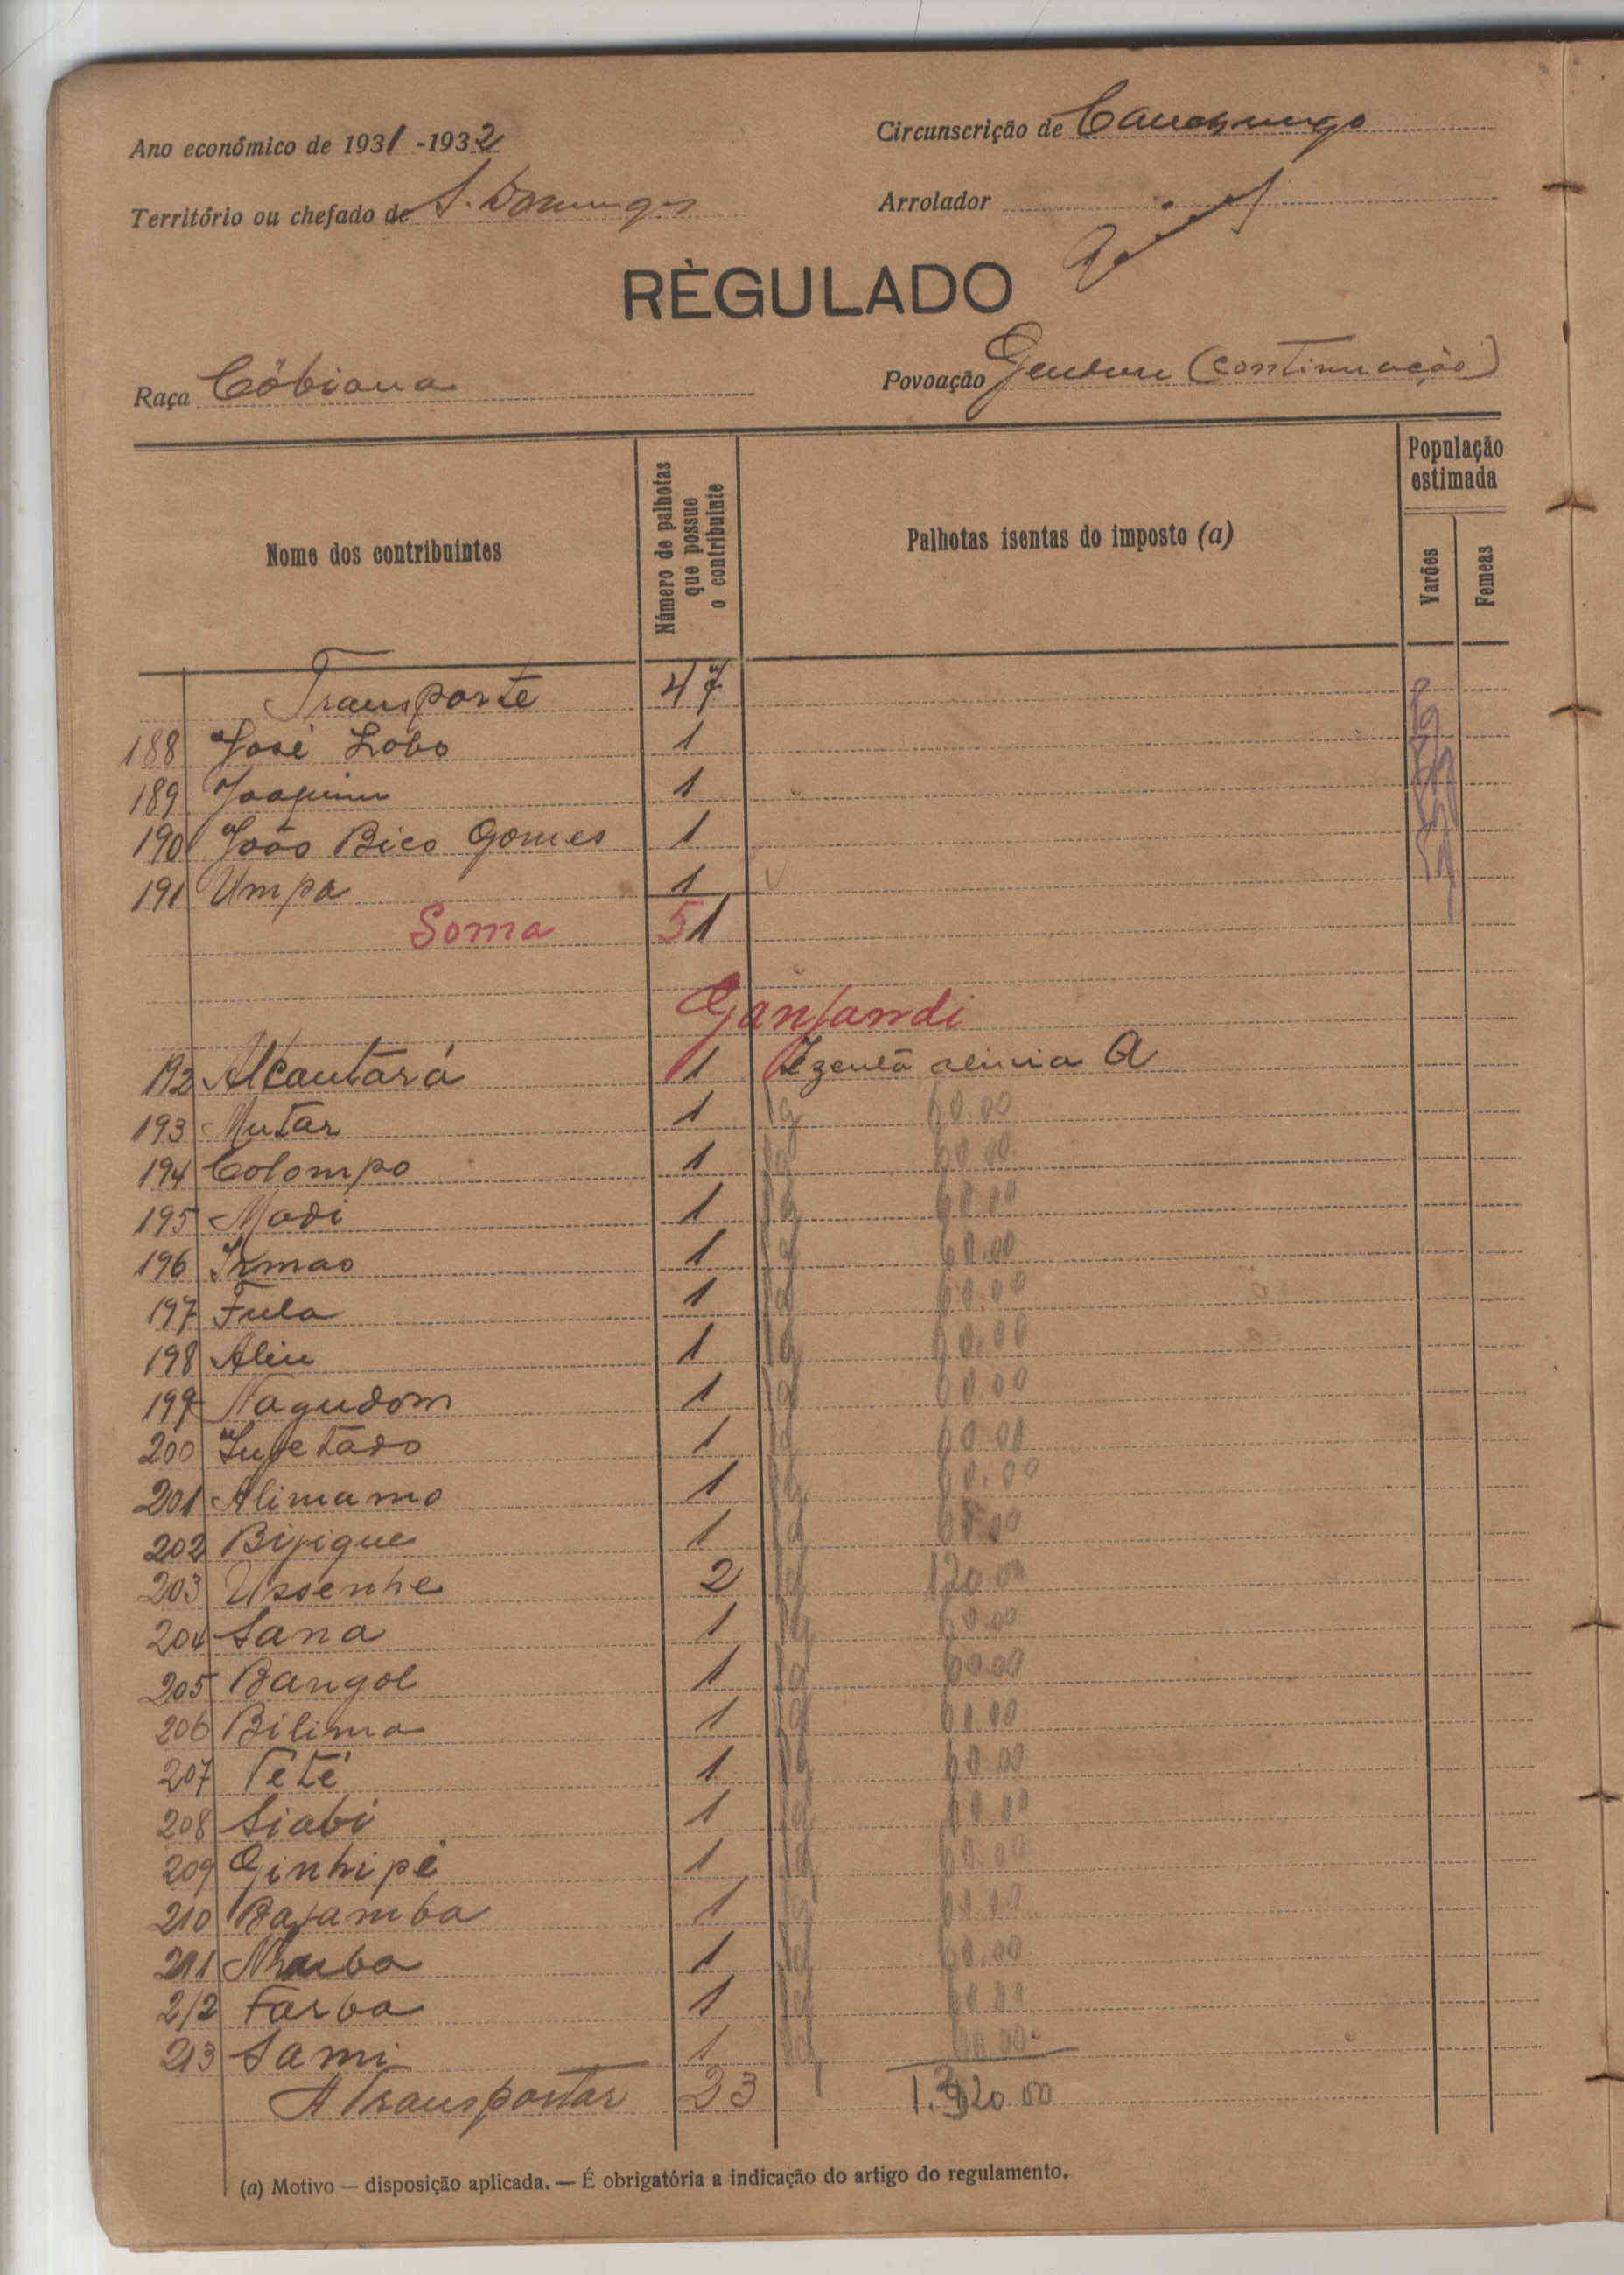 Ano económico de 1931-1932
Circunscrição de
Território ou chefado de S. Domingos
Arrolador
RÈGULADO
Raça Cóbiana
Povoação (continuação)
Nome dos contribuintes
Número de palhotas que possue o contribuinte
Palhotas isentas do imposto (a)
População estimada
Varões
Femeas
Transporte 47
188 José Lobo 1
189 Joaquim 1
190 João Bico Gomes 1
191 Umpa 1
Soma 51
Ganjandi
192 Alcantará 1 Izenta alinia A
193 Mutar 1 Pg 60.00
194 Colompo 1 Pg 60.00
195 Madi 1 Pg 60.00
196 Irmao 1 Pg 60.00
197 Fula 1 Pg 60.00
198 Aliu 1 Pg 60.00
199 Nagudom 1 Pg 60.00
200 Injetado 1 Pg 60.00
201 Alimamo 1 Pg 60.00
202 Bijique 1 Pg 60.00
203 Ussenhe 2 Pg 120.00
204 Sana 1 Pg 60.00
205 Bangol 1 Pg 60.00
206 Bilima 1 Pg 60.00
207 Tété 1 Pg 60.00
208 Siabi 1 Pg 60.00
209 Ginhipé 1 Pg 60.00
210 Bajamba 1 Pg 60.00
211 1 Pg 60.00
212 Farba 1 Pg 60.00
213 Sami 1 Pg 60.00
A Transportar 23 1.320.00
(a) Motivo — disposição aplicada. — É obrigatória a indicação do artigo do regulamento.